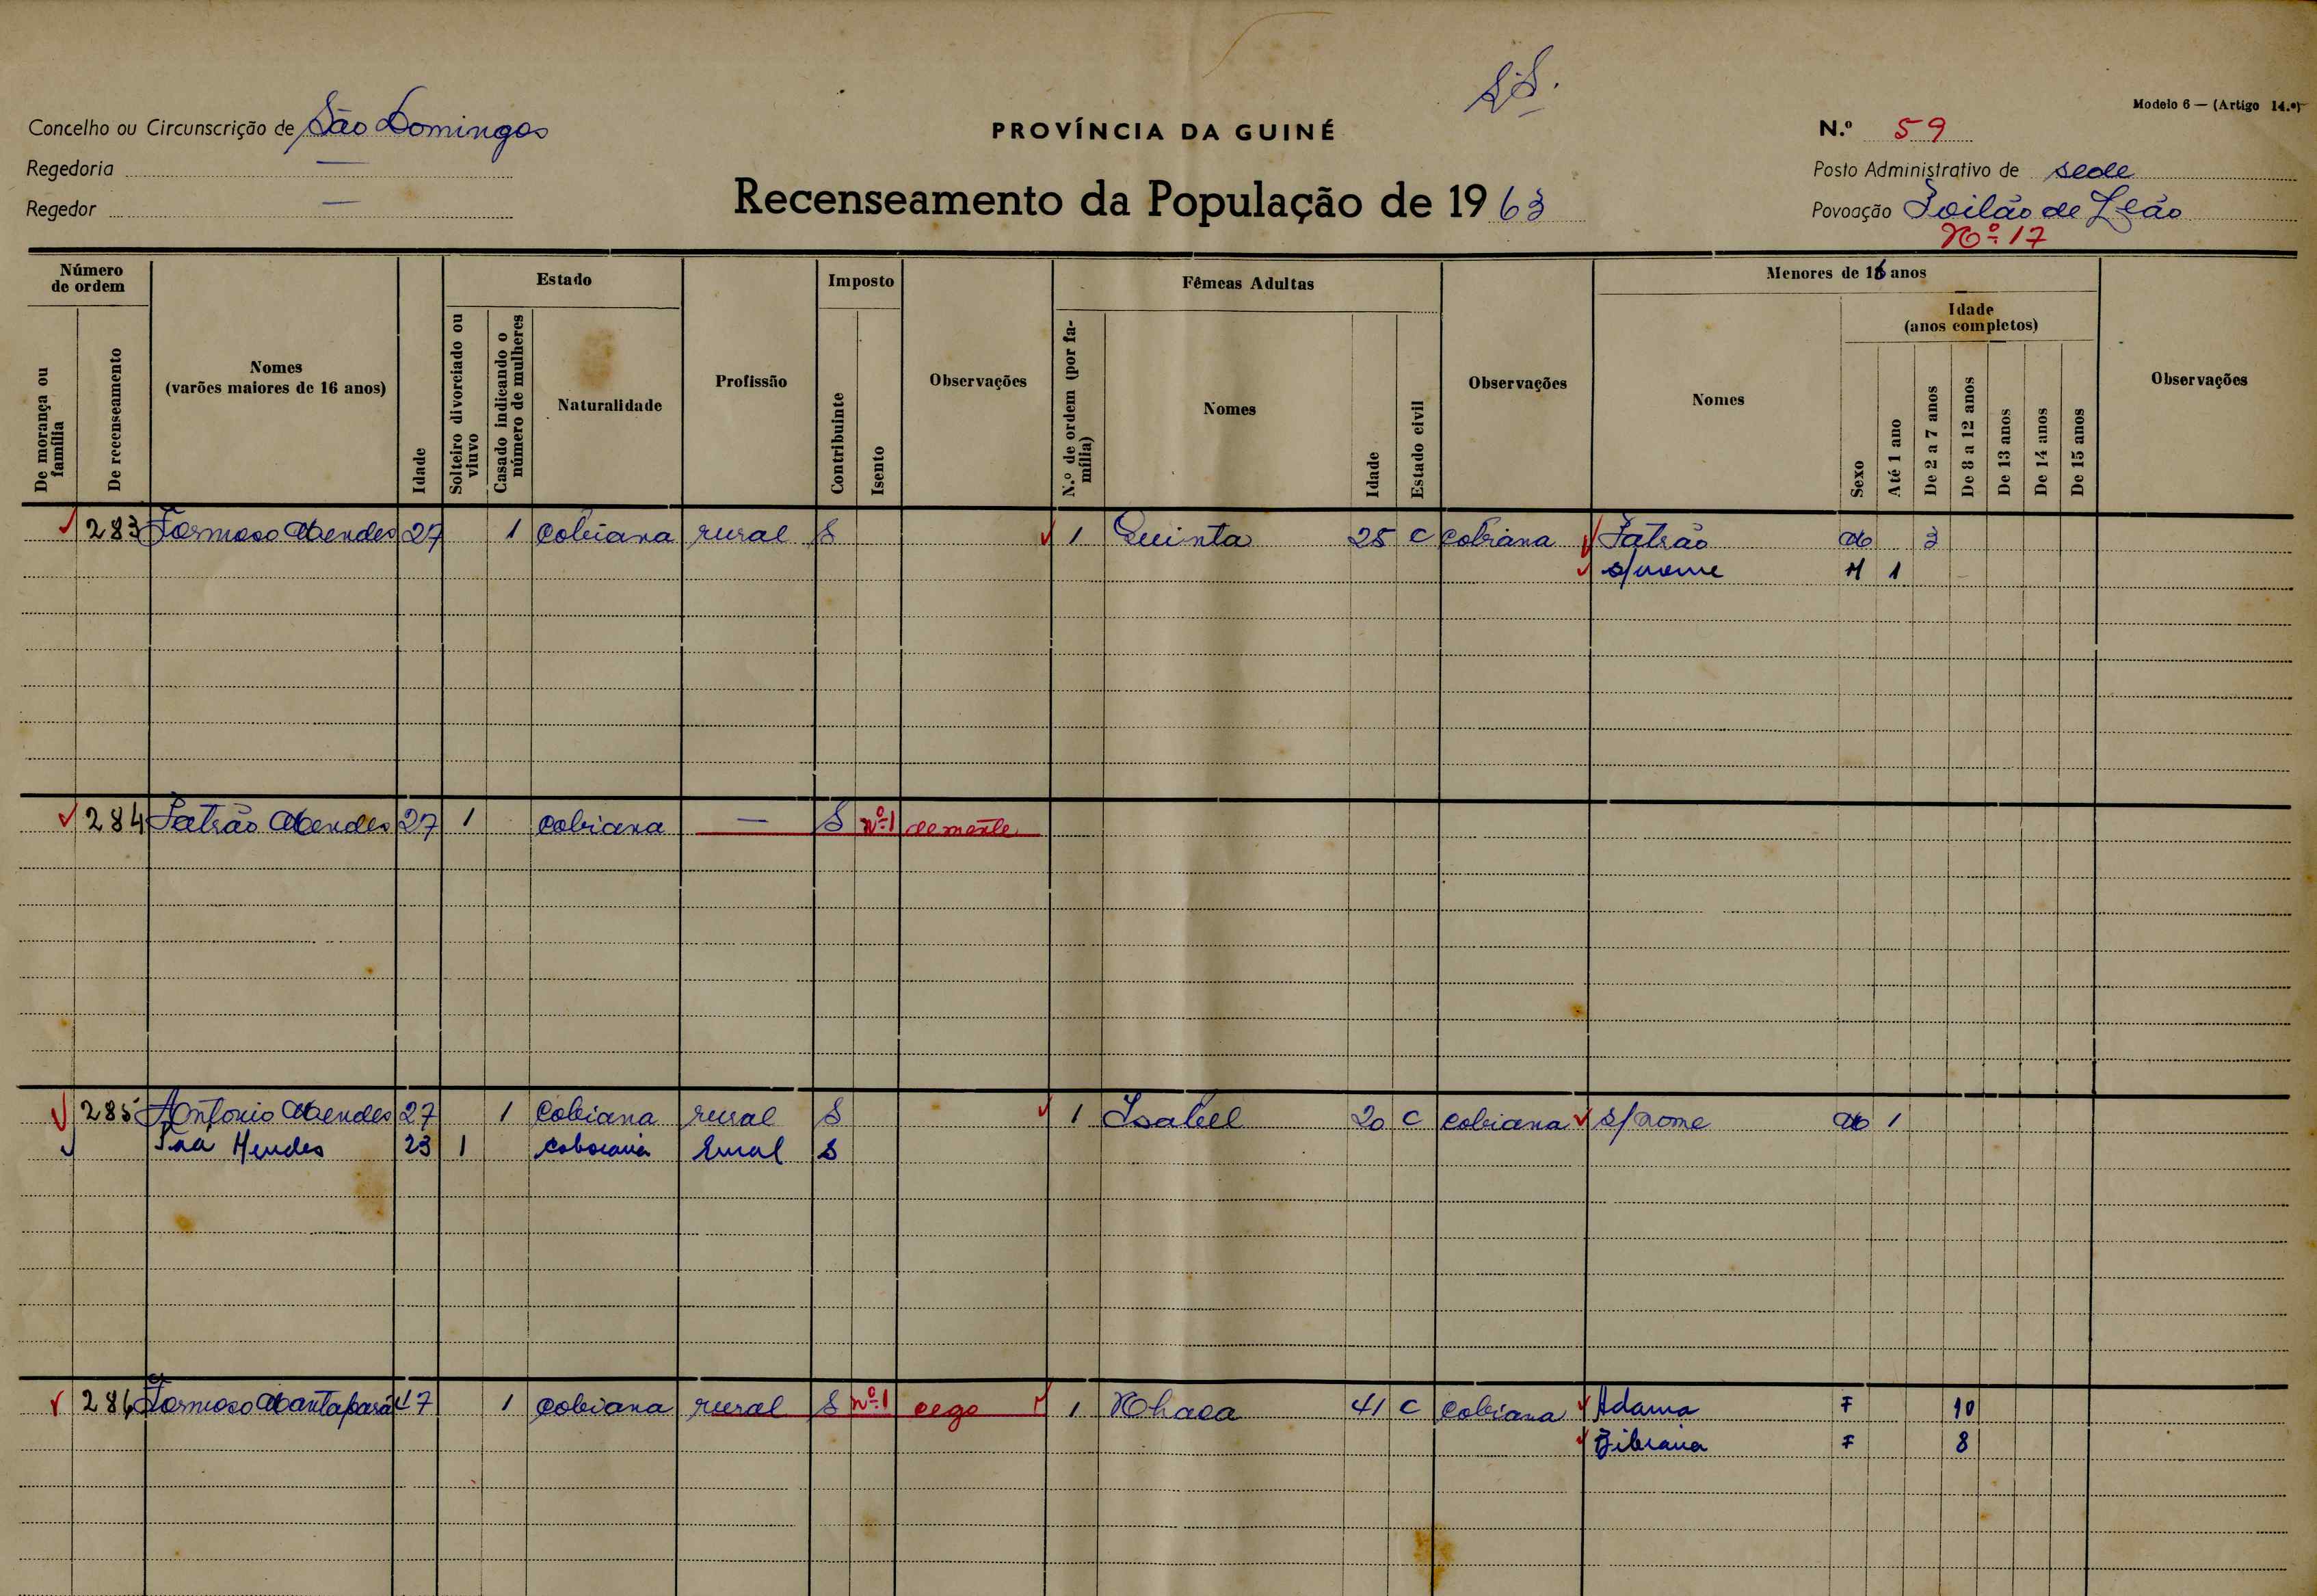 S.S.
Modelo 6 — (Artigo 14.º)
Concelho ou Circunscrição de São Domingos
PROVÍNCIA DA GUINÉ
N.º 59
Regedoria —
Posto Administrativo de sede
Regedor —
Recenseamento da População de 1963
Povoação Poilão de Leão
Nº 17
Número de ordem
De morança ou família
De recenseamento
Nomes
(varões maiores de 16 anos)
Idade
Estado
Solteiro divorciado ou viuvo
Casado indicando o número de mulheres
Naturalidade
Profissão
Imposto
Contribuinte
Isento
Observações
Fêmeas Adultas
N.º de ordem (por família)
Nomes
Idade
Estado civil
Observações
Menores de 16 anos
Nomes
Sexo
Idade
(anos completos)
Até 1 ano
De 2 a 7 anos
De 8 a 12 anos
De 13 anos
De 14 anos
De 15 anos
Observações
283 Formoso Mendes 27 1 cobiana rural S 1 Quinta 25 C cobiana Patrão M 3
s/nome M 1
284 Patrão Mendes 27 1 cobiana — S nº 1 demente
285 Antonio Mendes 27 1 cobiana rural S 1 Isabel 20 C cobiana s/nome M 1
Mendes 23 1 cobiana Rural S
286 Formoso 47 1 cobiana rural S nº 1 cego 1 Nhaca 41 C cobiana Adama F 10
Bibiana F 8